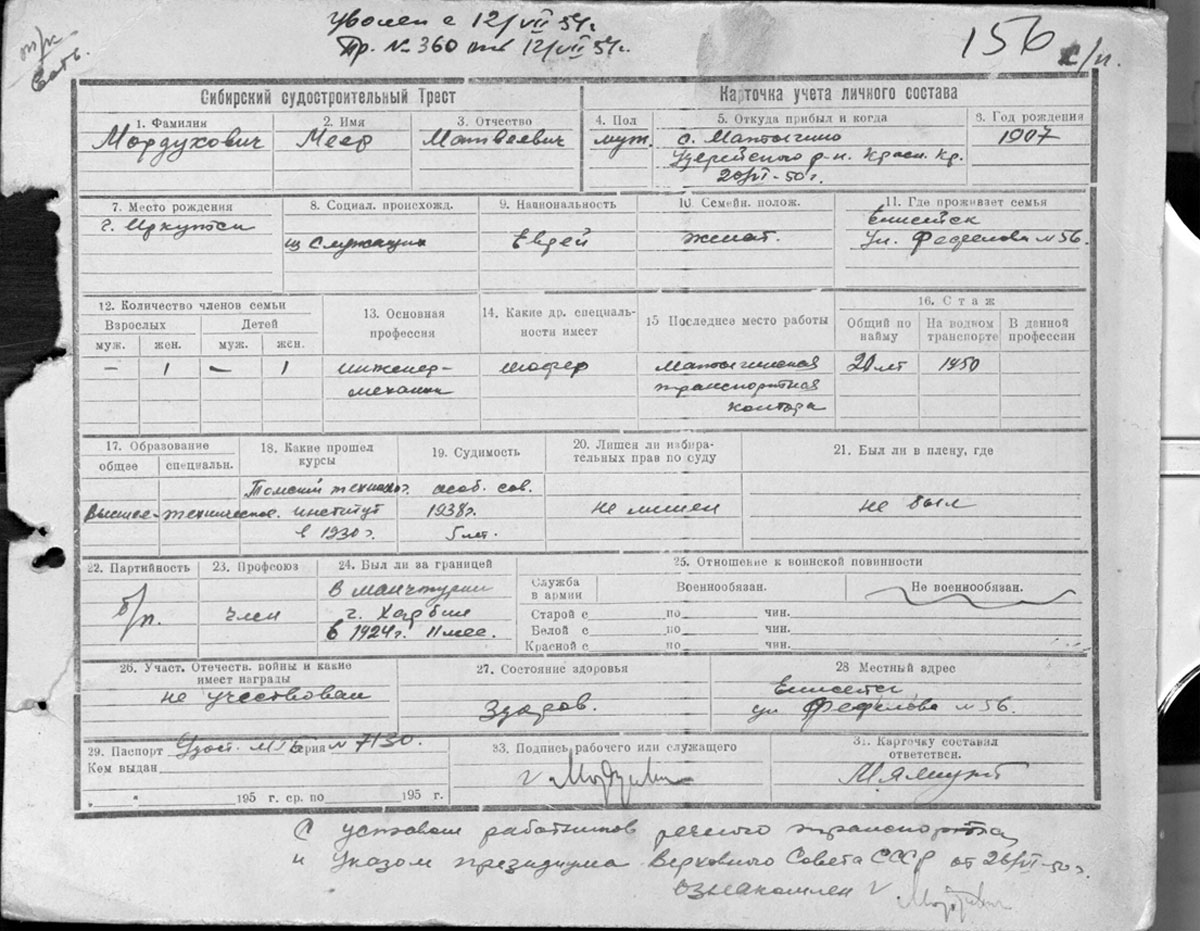 уволен с 12/VII 54г.
Пр. № 360 от 12/VII 54г.
156
Сибирский судостроительный Трест
Карточка учета личного состава
1. Фамилия
2. Имя
3. Отчество
4. Пол
5. Откуда прибыл и когда
6. Год рождения
Мордухович
Меер
Матвеевич
муж.
1907
Удерейского р-н. Красн. Кр.
20/VI-50г.
7. Место рождения
8. Социал. происхожд.
9. Национальность
10. Семейн. полож.
11. Где проживает семья
г. Иркутск
из служащих
Еврей
женат.
Енисейск
ул. Фефелова № 56.
12. Количество членов семьи
Взрослых
Детей
муж.
жен.
муж.
жен.
13. Основная
профессия
14. Какие др. специаль-
ности имеет
15 Последнее место работы
16. Стаж
Общий по
найму
На водном
транспорте
В данной
профессии
–
1
–
1
инженер-
механик
шофер
транспортная
контора
20 лт
1950
17. Образование
общее
специальн.
18. Какие прошел
курсы
19. Судимость
20. Лишен ли избира-
тельных прав по суду
21. Был ли в плену, где
Высшее-техническое.
Томский технолог.
институт
в 1930г.
особ. сов.
1938г.
5 лет.
не лишен
не был
22. Партийность
23. Профсоюз
24. Был ли за границей
25. Отношение к воинской повинности
б/п.
член
В манчжурии
г. Харбин
в 1924г. 11 мес.
Служба
в армии
Военнообязан.
Не военнообязан.
Старой с по чин.
Белой с по чин.
Красной с по чин.
26. Участ. Отечеств. войны и какие
имеет награды
27. Состояние здоровья
28 Местный адрес
не участвовал
Здоров.
Енисейск
ул Фефелова № 56.
29. Паспорт Удост. МГБ серия № 7130.
Кем выдан
" " 195 г. ср. по 195 г.
33. Подпись рабочего или служащего
31. Карточку составил
ответствен.
С уставом работников речного транспорта
и Указом президиума Верховного Совета СССР от 26/VI-50г.
ознакомлен